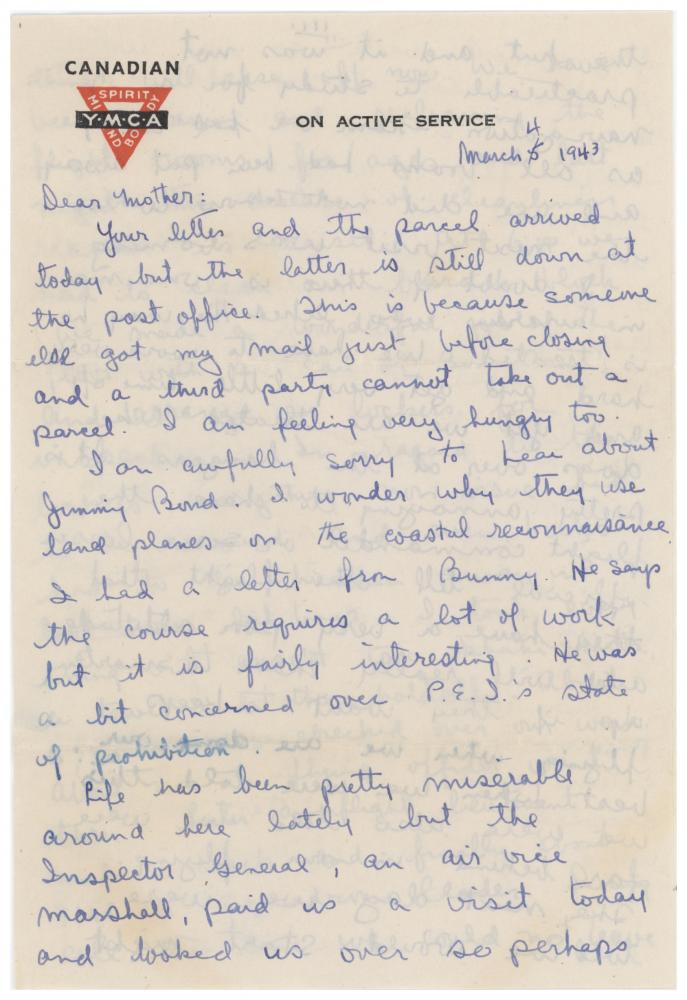 CANADIAN
SPIRIT
MIND
BODY
Y·M·C·A
ON ACTIVE SERVICE
March 4 1943
Dear Mother:
Your letter and the parcel arrived
today but the latter is still down at
the post office. This is because someone
else got my mail just before closing
and a third party cannot take out a
parcel. I am feeling very hungry too.
I am awfully sorry to hear about
Jimmy Bond. I wonder why they use
land planes on the coastal reconnaisance
I had a letter from Bunny. He says
the course requires a lot of work
but it is fairly interesting. He was
a bit concerned over P.E.I.'s state
of prohibition.
Life has been pretty miserable
around here lately but the
Inspector General, an air vice
marshall, paid us a visit today
and looked us over so perhaps